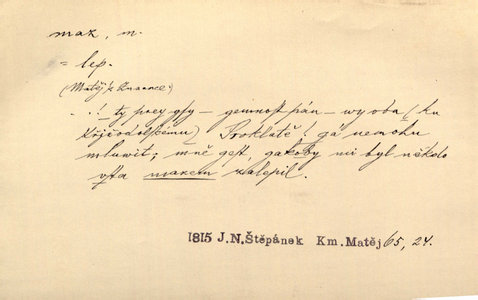 maz, m.
= lep.
(Matěj z Krasnce:)
...! ty prey gsy – gemnost pán – wy oba (ku
) Prokletě! gá nemohu
mluwit; mně gest, gakoby mi byl někdo
vsta mazem zalepil.
1815 J.N.Štěpánek Km.Matěj 65, 24.